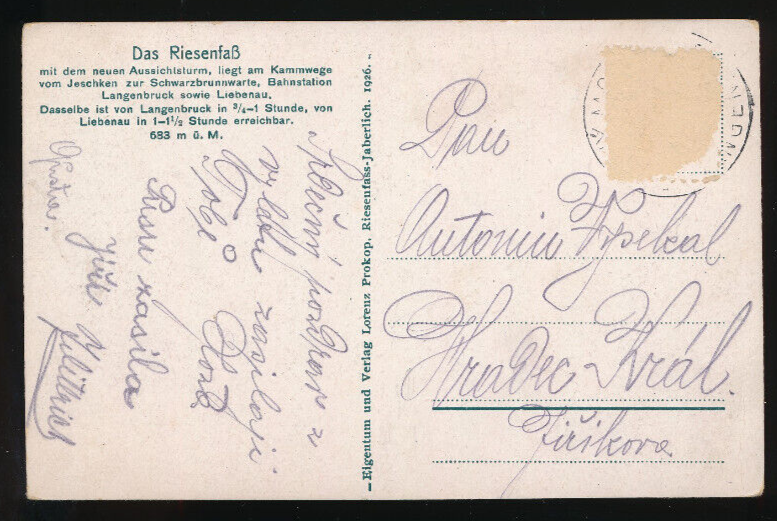 Das Riesenfaß
mit dem neuen Aussichtsturm, liegt am Kammwege
vom Jeschken zur Schwarzbrunnwarte, Bahnstation
Langenbruck sowie Liebenau.
Dasselbe ist von Langenbruck in ¾–1 Stunde, von
Liebenau in 1–1½ Stunde erreichbar.
683 m ü. M.
Srdečný pozdrav z
výletu zasílají
Tobě
zasílá
Jiří
— Eigentum und Verlag Lorenz Prokop, Riesenfass-Jaberlich. 1926. „
Pan
Antonín
Hradec-Král.
Jiříkova